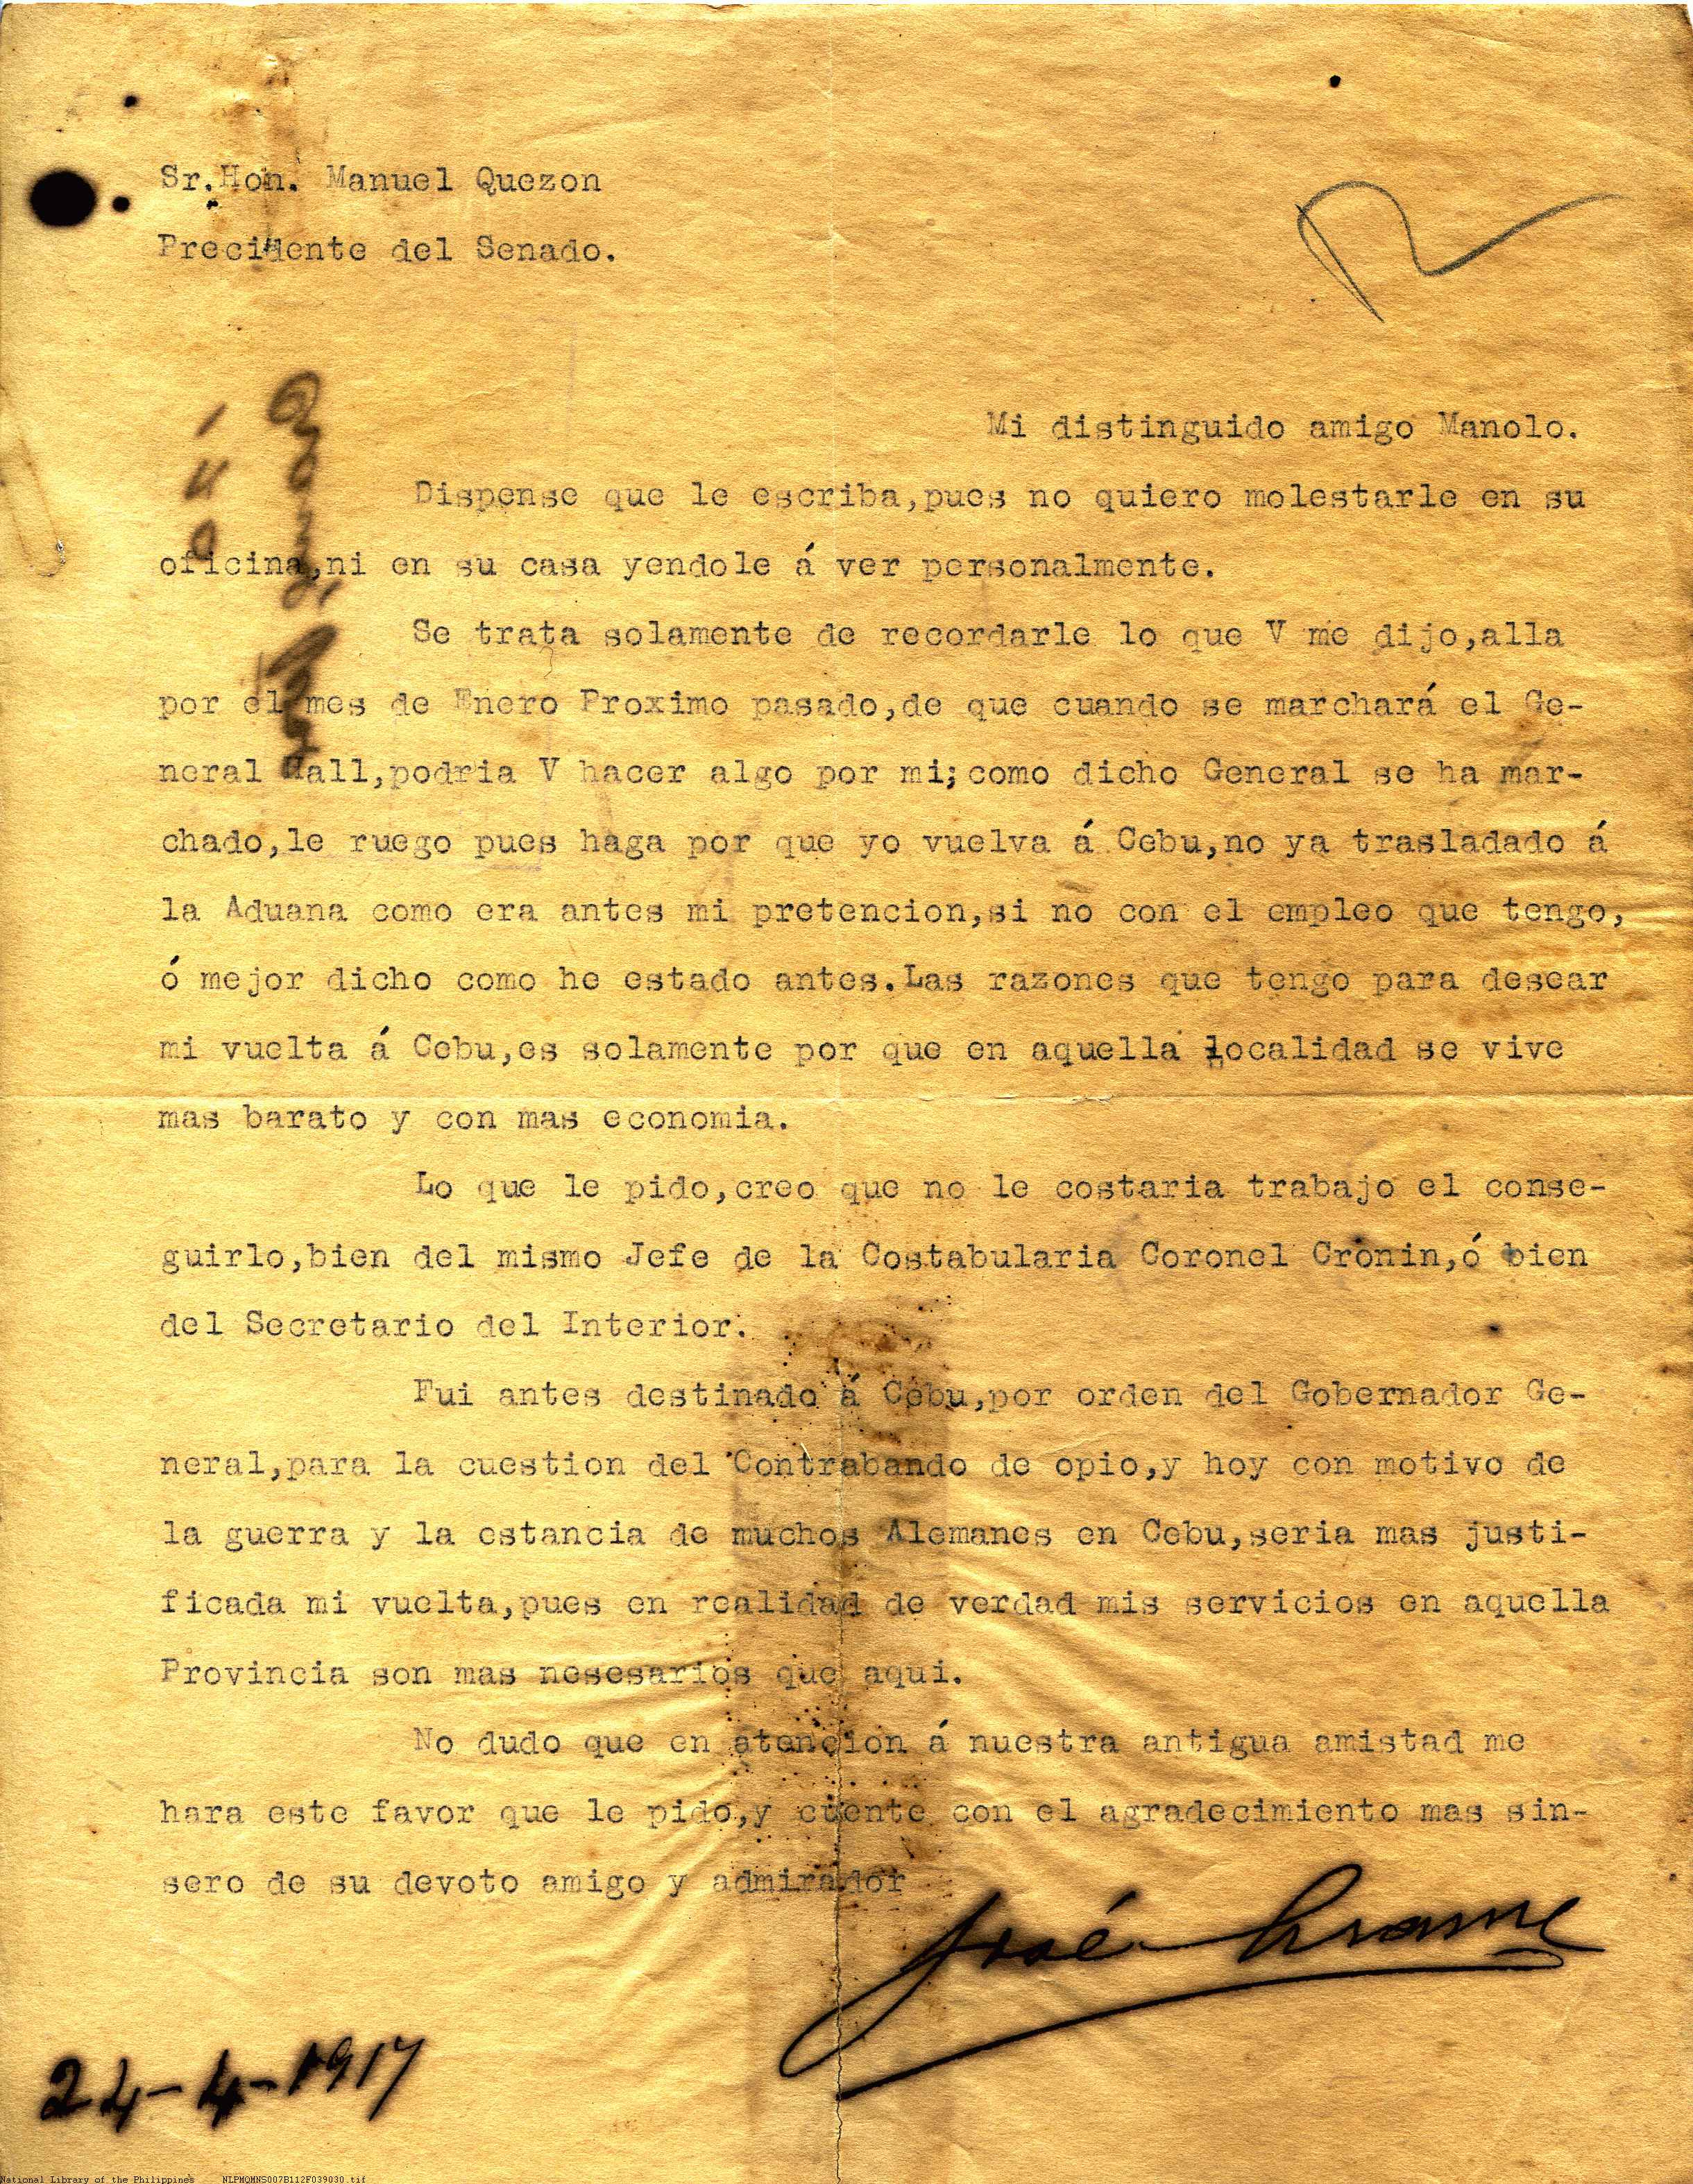 Sr.Hon. Manuel Quezon
Precidente del Senado.
Mi distinguido amigo Manolo.
Dispense que le escriba,pues no quiero molestarle en su
oficina,ni en su casa yendole á ver personalmente.
Se trata solamente de recordarle lo que V me dijo,alla
por el mes de Enero Proximo pasado,de que cuando se marchará el Ge-
neral Hall,podria V hacer algo por mi;como dicho General se ha mar-
chado,le ruego pues haga por que yo vuelva á Cebu,no ya trasladado á
la Aduana como era antes mi pretencion,si no con el empleo que tengo,
ó mejor dicho como he estado antes.Las razones que tengo para desear
mi vuelta á Cebu,es solamente por que en aquella localidad se vive
mas barato y con mas economia.
Lo que le pido,creo que no le costaria trabajo el conse-
guirlo,bien del mismo Jefe de la Costabularia Coronel Cronin,ó bien
del Secretario del Interior.
Fui antes destinado á Cebu,por orden del Gobernador Ge-
neral,para la cuestion del Contrabando de opio,y hoy con motivo de
la guerra y la estancia de muchos Alemanes en Cebu,seria mas justi-
ficada mi vuelta,pues en realidad de verdad mis servicios en aquella
Provincia son mas nesesarios que aqui.
No dudo que en atencion á nuestra antigua amistad me
hara este favor que le pido,y cuente con el agradecimiento mas sin-
sero de su devoto amigo y admirador
José
24-4-1917
National Library of the Philippines NLPMQMNS007B112F039030.tif